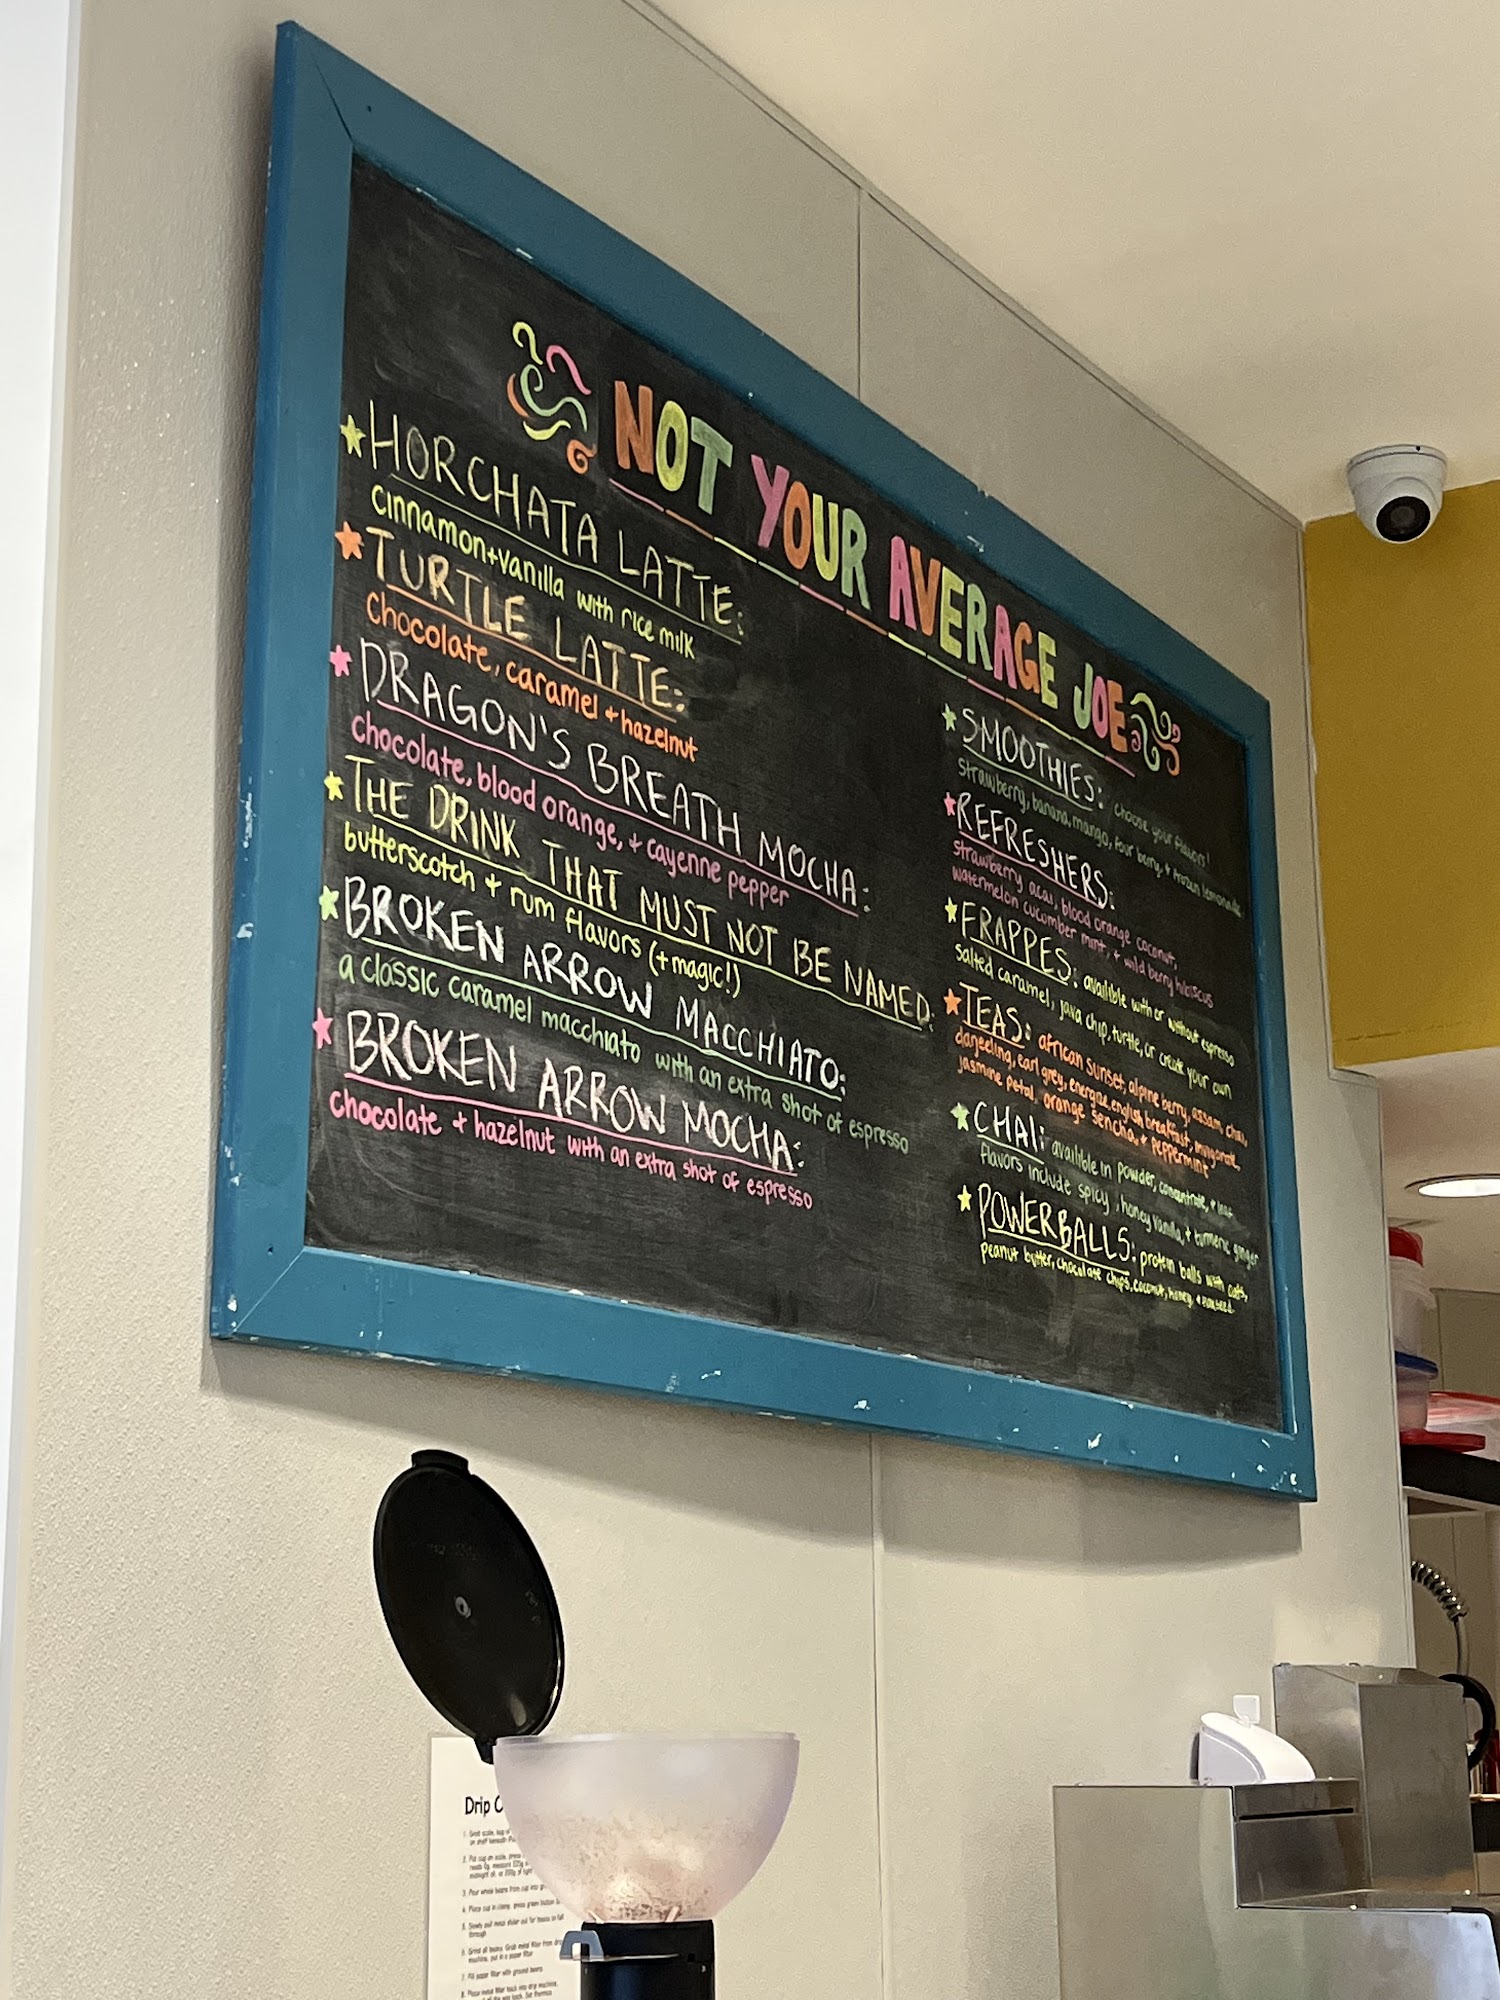 NOT YOUR AVERAGE JOE
HORCHATA LATTE:
cinnamon+vanilla with rice milk
TURTLE LATTE:
chocolate, caramel + hazelnut
DRAGON'S BREATH MOCHA:
chocolate, blood orange, + cayenne pepper
THE DRINK THAT MUST NOT BE NAMED:
butterscotch + rum flavors (+magic!)
BROKEN ARROW MACCHIATO:
a classic caramel macchiato with an extra shot of espresso
BROKEN ARROW MOCHA:
chocolate + hazelnut with an extra shot of espresso
SMOOTHIES: choose your flavors!
strawberry, banana, mango, four berry, + frozen lemonade
REFRESHERS:
strawberry acai, blood orange coconut,
watermelon cucumber mint, + wild berry hibiscus
FRAPPES: availible with or without espresso
salted caramel, java chip, turtle, or create your own
TEAS: african sunset, alpine berry, assam, chai,
darjeeling, earl grey, english breakfast, invigorate,
jasmine petal, orange sencha, + peppermint
CHAI: availible in powder, concentrate, + leaf
flavors include spicy, honey vanilla, + turmeric ginger
POWERBALLS: protein balls with oats,
peanut butter, chocolate chips, coconut, honey, +
Drip